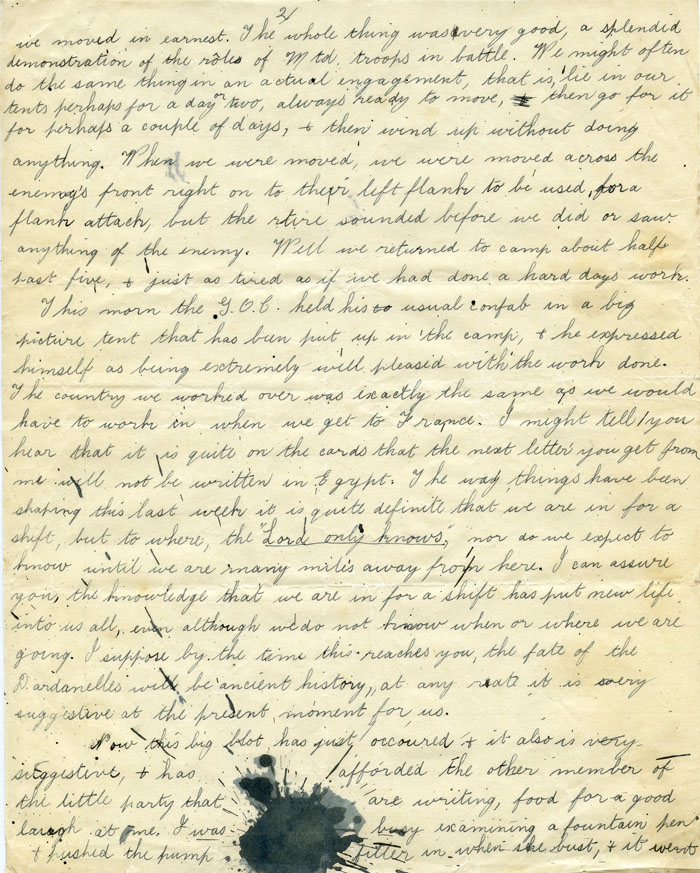 2/
we moved in earnest. The whole thing was very good, a splendid
demonstration of the rôles of Mtd. troops in battle. We might often
do the same thing in an actual engagement, that is, lie in our
tents perhaps for a day or two, always ready to move, + then go for it
for perhaps a couple of days, + then wind up without doing
anything. When we were moved, we were moved across the
enemy's front right on to their left flank to be used, for a
flank attack, but the rtire sounded before we did or saw
anything of the enemy. Well we returned to camp about half
past five, + just as tired as if we had done a hard days work.
This morn the G.O.C. held his usual confab in a big
picture tent that has been put up in the camp, + he expressed
himself as being extremely well pleased with the work done.
The country we worked over was exactly the same as we would
have to work in when we get to France. I might tell you
hear that it is quite on the cards that the next letter you get from
me will not be written in Egypt. The way things have been
shaping this last week it is quite definite that we are in for a
shift, but to where, the "Lord only knows", nor do we expect to
know until we are many miles away from here. I can assure
you, the knowledge that we are in for a shift has put new life
into us all, even although we do not know when or where we are
going. I suppose by the time this reaches you, the fate of the
Dardanelles will be ancient history, at any rate it is very
suggestive at the present moment for us.
Now this big blot has just occoured + it also is very
suggestive, + has afforded the other member of
the little party that are writing, food for a good
laugh at me. I was busy examining a fountain pen
+ pushed the pump fitter in when she bust, + it went